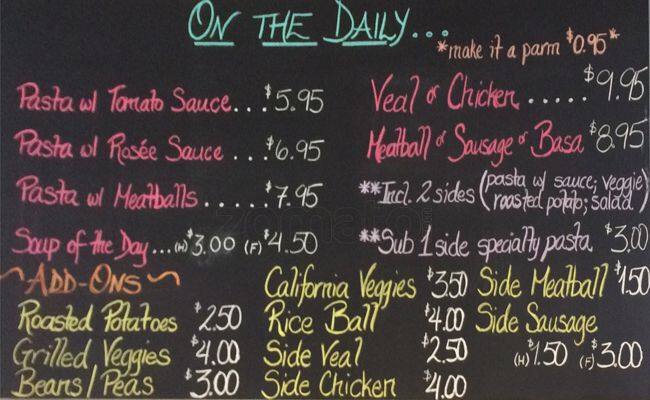 ON THE DAILY...
*make it a parm $0.95*
Pasta w/ Tomato Sauce...$5.95
Pasta w/ Rosée Sauce ...$6.95
Pasta w/ Meatballs......$7.95
Soup of the Day...(H)$3.00 (F)$4.50
Veal or Chicken.....$9.95
Meatball or Sausage or Basa $8.95
**Incl. 2 sides (pasta w/ sauce; veggie;
roasted potato; salad)
**Sub 1 side specialty pasta $3.00
~ADD-ONS~
Roasted Potatoes $2.50
Grilled Veggies $4.00
Beans/Peas $3.00
California Veggies $3.50
Rice Ball $4.00
Side Veal $2.50
Side Chicken $4.00
Side Meatball $1.50
Side Sausage
(H)$1.50 (F)$3.00